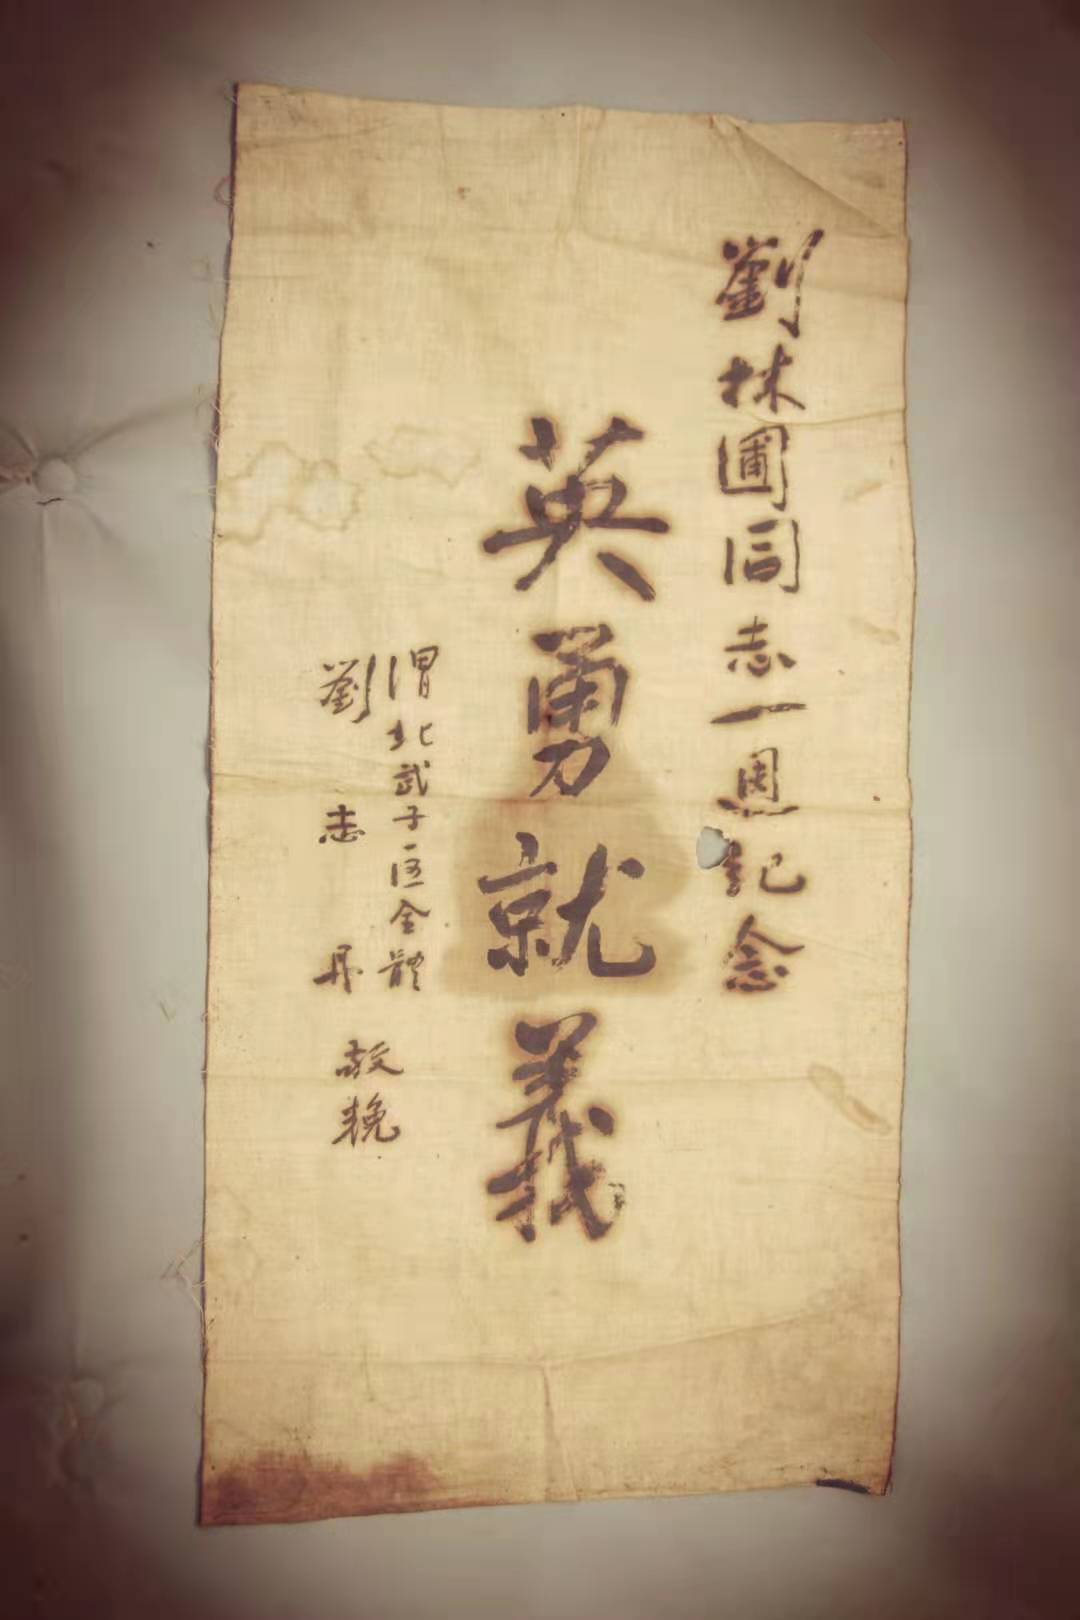 劉林圃同志一週記念
英勇就義
渭北武子區全體
劉志丹
敬輓